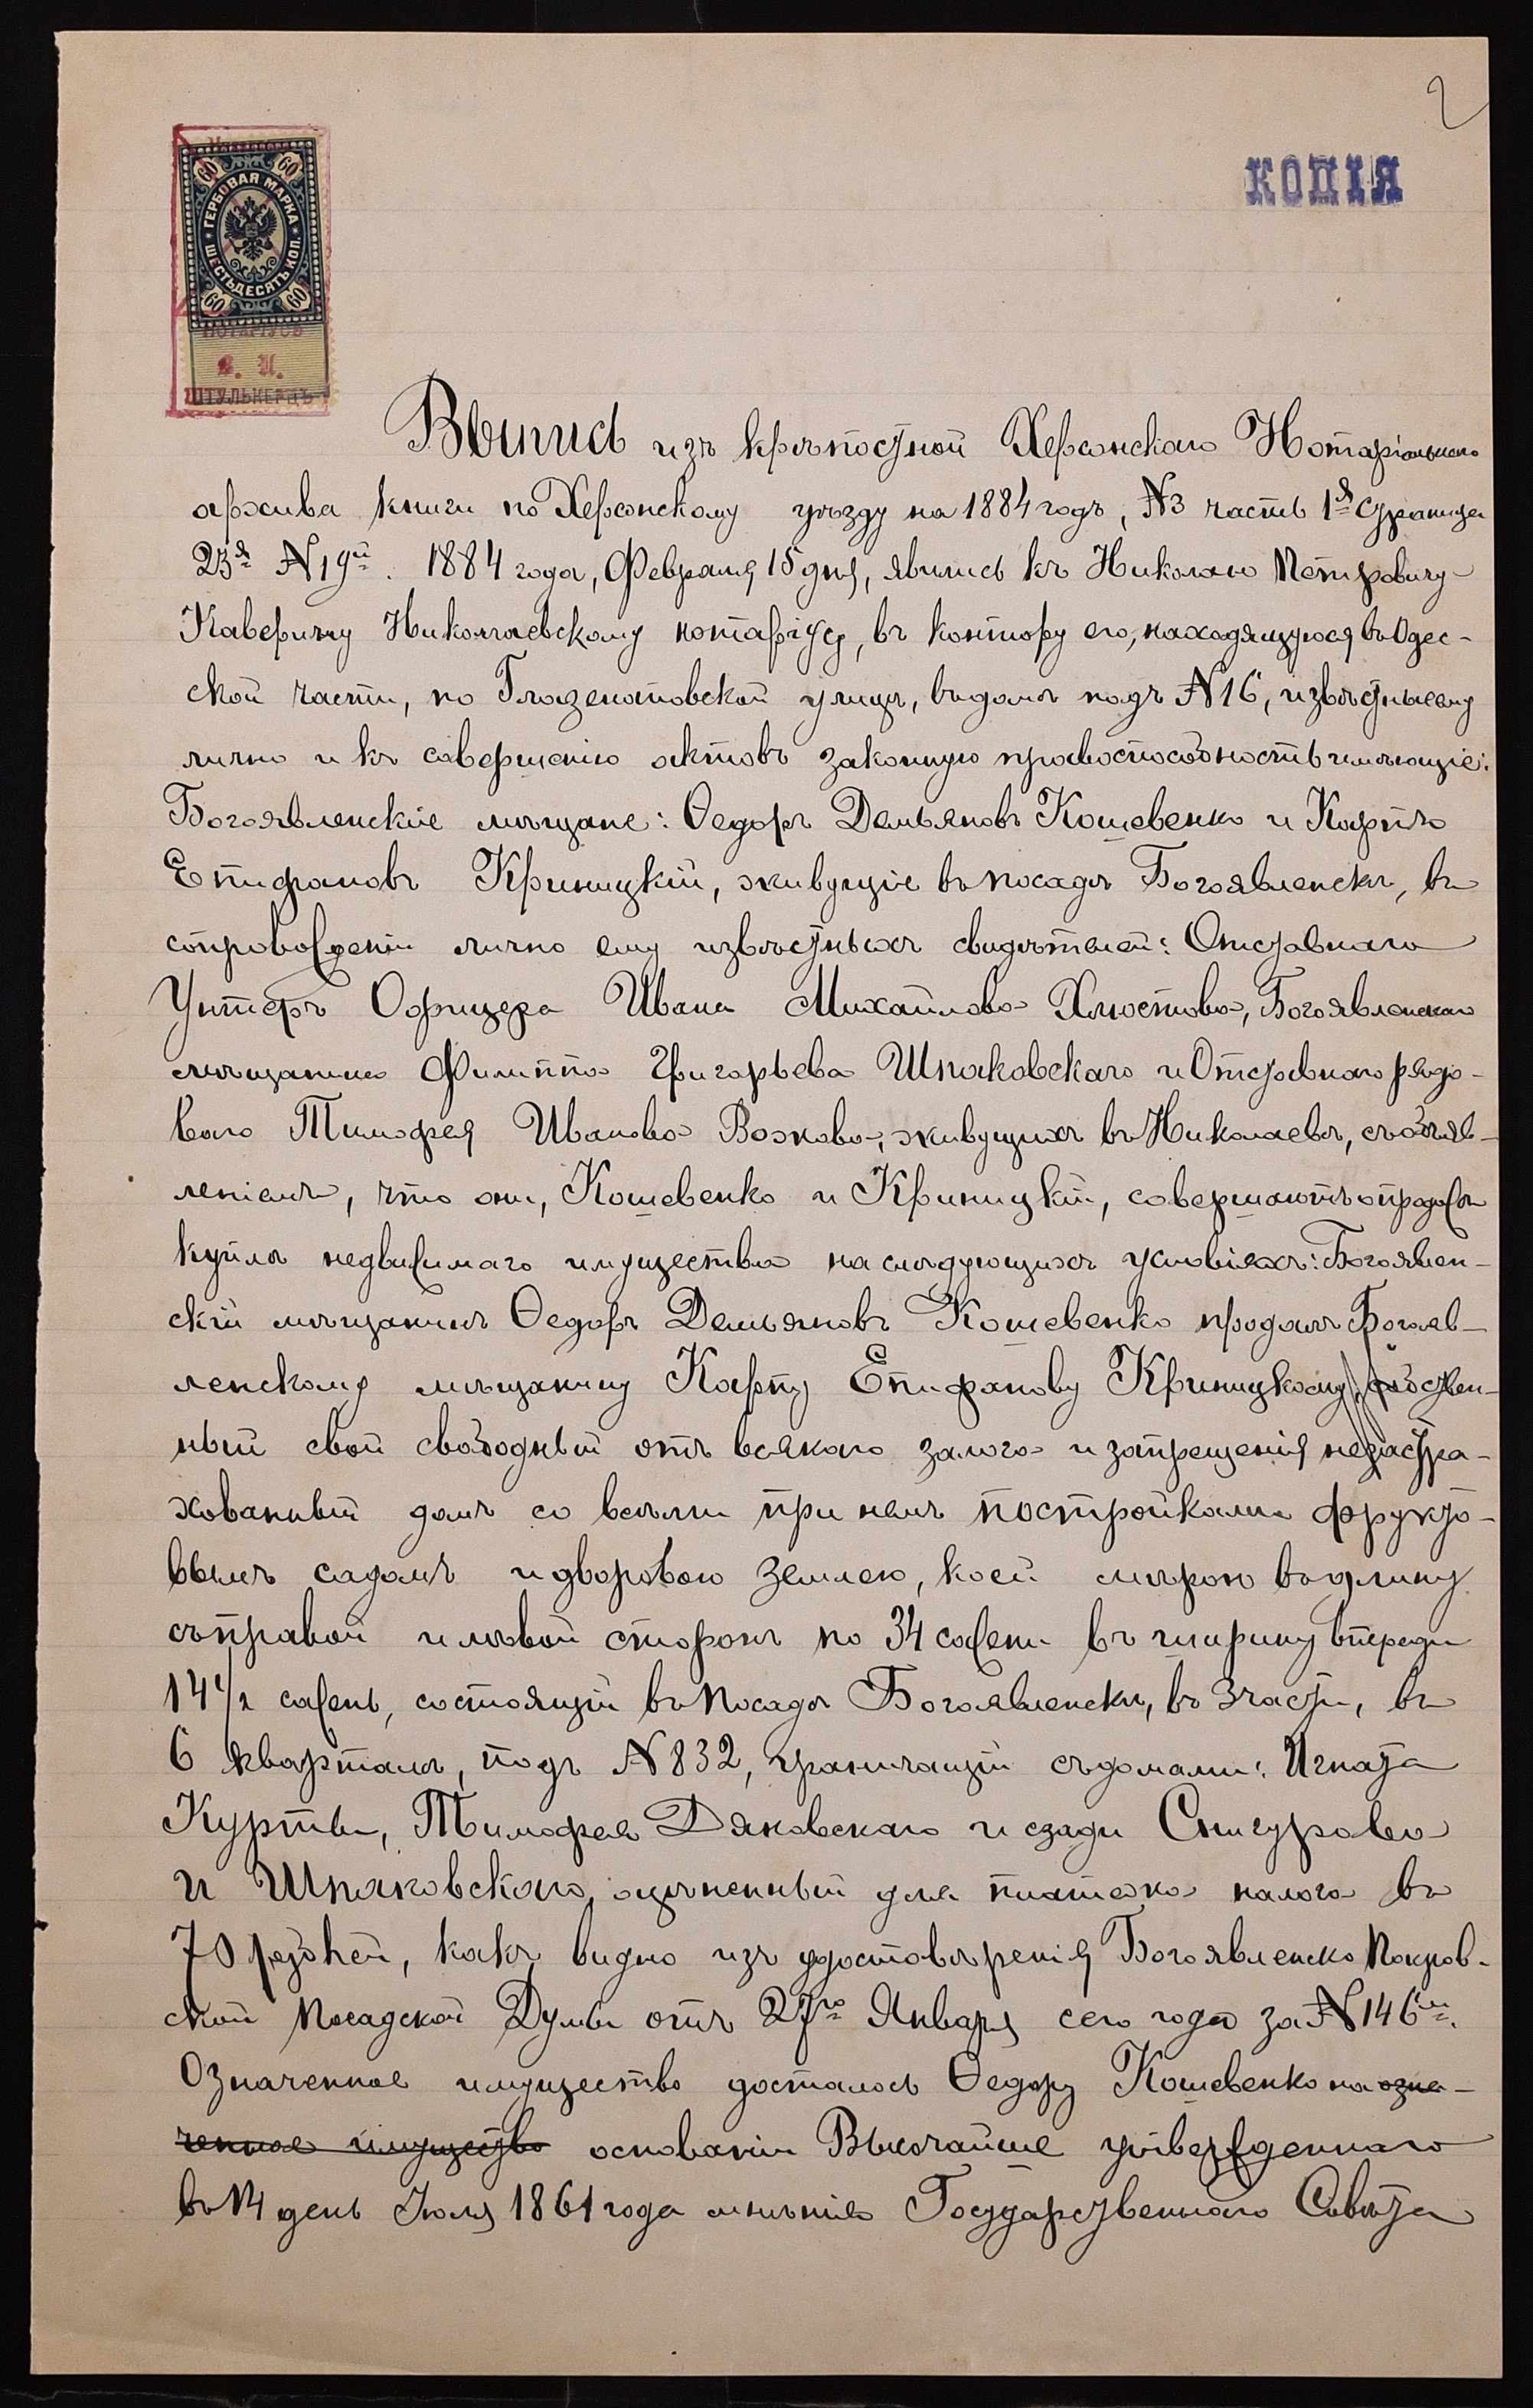 2
КОПІЯ
60 60
ГЕРБОВАЯ МАРКА
ШЕСТЬДЕСЯТЪ КОП.
60 60
НОТАРІУСЪ
ШТУЛЬКЕРЦЪ
Выпись изъ крѣпостной Херсонскаго Нотаріальнаго
архива книги по Херсонскому уѣзду на 1884 годъ, №3 часть 1я страница
23я №19й. 1884 года, Февраля 15 дня, явились къ Николаю Петровичу
Каверину Николаевскому нотаріусу, въ контору его, находящуюся въ Одес-
ской части, по Глазенаповской улицѣ, въ домѣ подъ №16, извѣстные ему
лично и къ совершенію актовъ законную правоспособность имѣющіе:
Богоявленскіе мѣщане: Ѳедоръ Демьяновъ Кошевенко и Карпъ
Епифановъ Криницкій, живущіе въ посадѣ Богоявленскѣ, въ
сопровожденіи лично ему извѣстныхъ свидѣтелей: Отставнаго
Унтеръ Офицера Ивана Михайлова Хлюстова, Богоявленскаго
мѣщанина Филиппа Григорьева Шпаковскаго и Отставнаго рядо-
ваго Тимофея Иванова Возкова, живущихъ въ Николаевѣ, съ объяв-
леніемъ, что они, Кошевенко и Криницкій, совершаютъ о продажѣ
куплѣ недвижимаго имущества на слѣдующихъ условіяхъ: Богоявлен-
скій мѣщанинъ Ѳедоръ Демьяновъ Кошевенко продалъ Богояв-
ленскому мѣщанину Карпу Епифанову Криницкому, собствен-
ный свой свободный отъ всякаго залога и запрещенія незастра-
хованный домъ со всѣми при немъ постройками фрукто-
вымъ садомъ и дворовою землею, коей мѣрою въ длину
съ правой и лѣвой сторонъ по 34 сажени въ ширину впереди
14 1/2 сажень, состоящій въ посадѣ Богоявленскѣ, въ 3 части, въ
6 кварталѣ, подъ №832, граничащій съ домами: Игната
Курпты, Тимофея Дяковскаго и сзади Снигурова
и Шпаковскаго, оцѣненный для платежа налога въ
70 рублей, какъ видно изъ удостовѣренія Богоявленско Покров-
ской Посадской Думы отъ 27го Января сего года за №146м.
Означенное имущество досталось Ѳедору Кошевенко на озна-
ченное имущество основаніи Высочайше утвержденнаго
въ 14 день Іюля 1861 года мнѣнія Государственнаго Совѣта